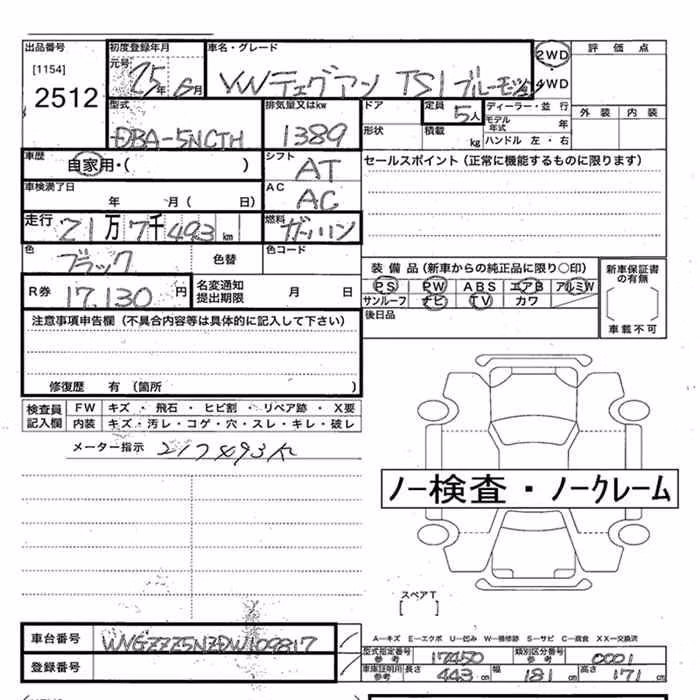 出品番号 初度登録年月 車名・グレード 評価点
[1154] 元号 25年6月 VWティグアン TSI ブルーモーション 2WD 4WD
2512
型式 排気量又はkw ドア 定員 5人 ディーラー・並行 外装 内装
DBA-5NCTH 1389 形状 積載 kg モデル年式 年
ハンドル 左・右
車歴 自家用・( ) シフト AT セールスポイント(正常に機能するものに限ります)
車検満了日 年 月( 日) AC AC
走行 21万7千493km 燃料 ガソリン
色 ブラック 色替 色コード
装備品(新車からの純正品に限り○印) 新車保証書の有無
R券 17,130円 名変通知提出期限 月 日 PS PW ABS エアB アルミW
サンルーフ ナビ TV カワ 車載不可
注意事項申告欄(不具合内容等は具体的に記入して下さい) 後日品
修復歴 有(箇所 )
検査員記入欄 FW キズ・飛石・ヒビ割・リペア跡・X要
内装 キズ・汚レ・コゲ・穴・スレ・キレ・破レ
メーター指示 217493K
ノー検査・ノークレーム
スペアT
[ ]
車台番号 WVGZZZ5NZDW109817 A—キズ E—エクボ U—凹み W—補修跡 S—サビ C—腐食 XX—交換済
型式指定番号 参考 17450 類別区分番号 参考 0001
登録番号 車庫証明用 参考 長さ 443cm 幅 181cm 高さ 171cm